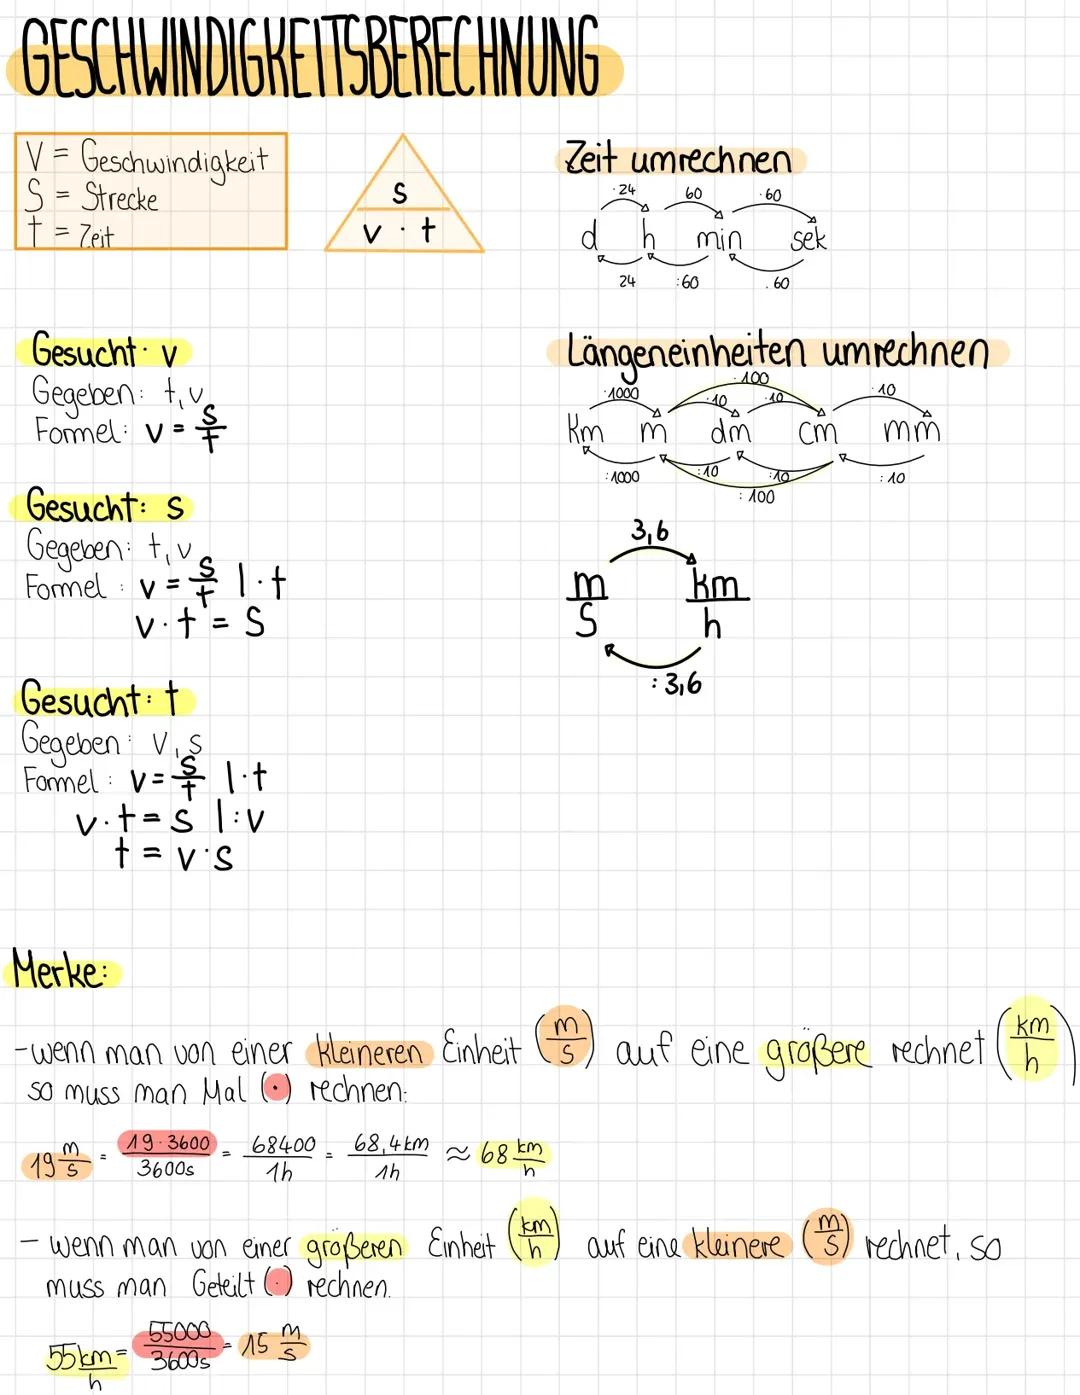 GESCHWINDIGKEITSBERECHNUNG
V = Geschwindigkeit
S = Strecke
t = Zeit
s
v · t
Zeit umrechnen
·24 60 ·60
d h min sek
24 :60 .60
Gesucht· v
Gegeben: t, v
Formel: v = s/t
Längeneinheiten umrechnen
·100
·1000 ·10 ·10 ·10
Km m dm cm mm
:1000 :10 :10 :10
:100
Gesucht: s
Gegeben: t, v
Formel: v = s/t |·t
v·t = S
3,6
m/s km/h
:3,6
Gesucht: t
Gegeben: V, s
Formel: v = s/t |·t
v·t = s |:v
t = v·s
Merke:
-wenn man von einer kleineren Einheit (m/s) auf eine größere rechnet (km/h)
so muss man Mal (·) rechnen:
19 m/s = 19·3600/3600s = 68400/1h = 68,4km/1h ≈ 68 km/h
- wenn man von einer größeren Einheit (km/h) auf eine kleinere (m/s) rechnet, so
muss man Geteilt (:) rechnen.
55km/h = 55000/3600s = 15 m/s